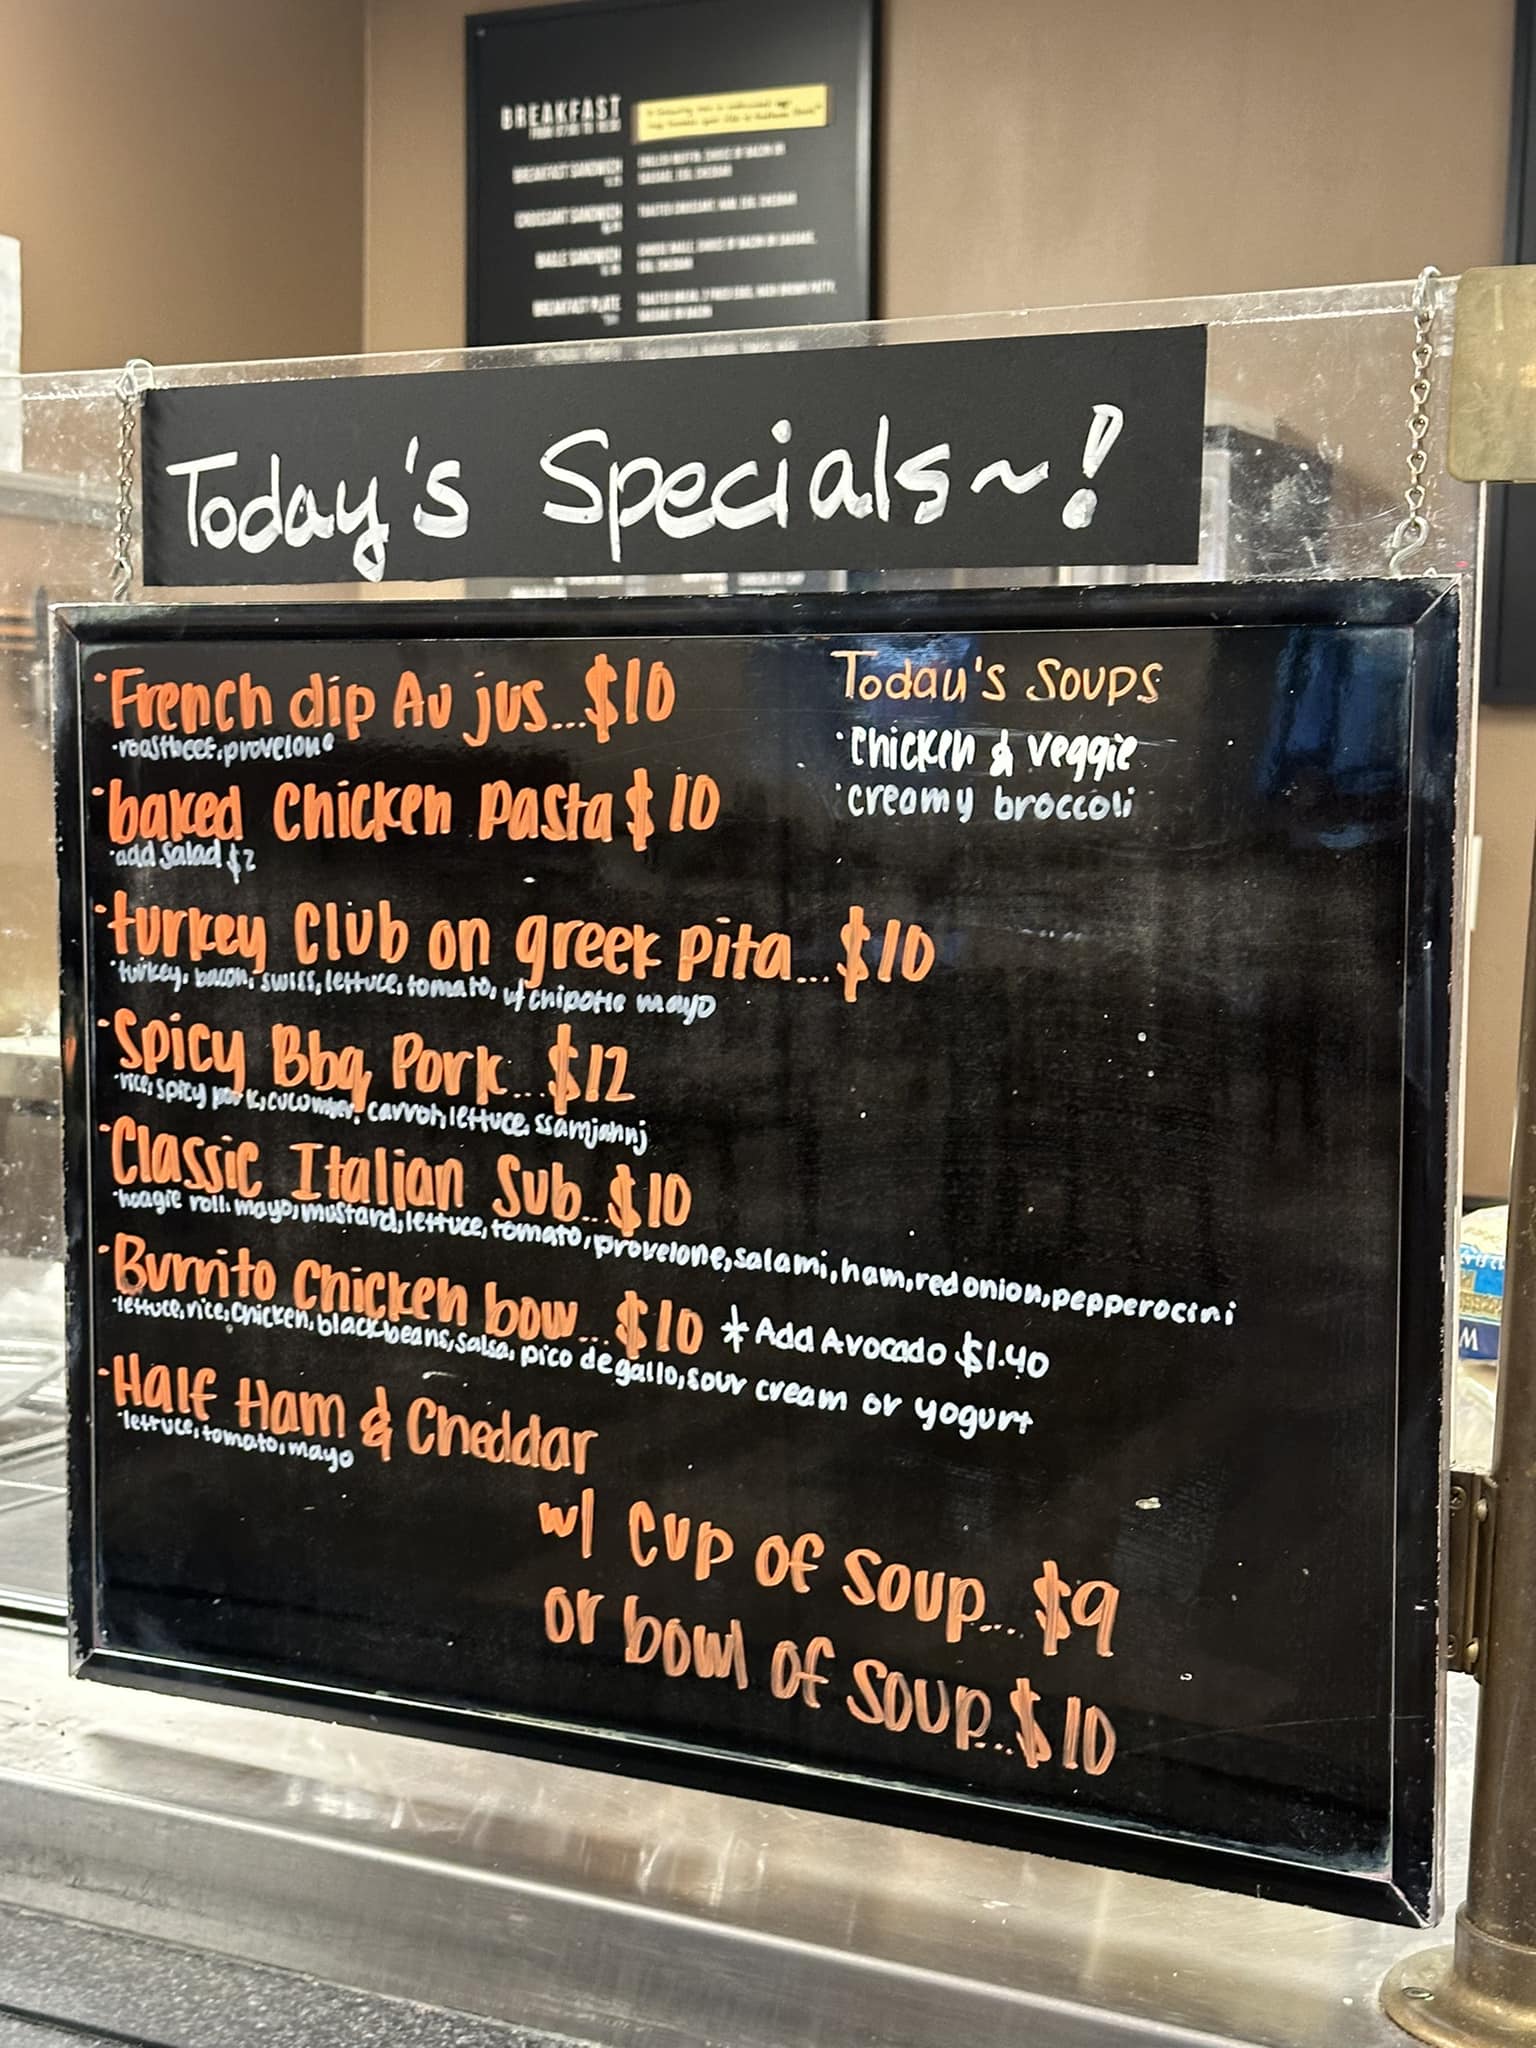 BREAKFAST
BREAKFAST SANDWICH
CROISSANT SANDWICH
BREAKFAST PLATE
Today's Specials~!
·French dip Au jus...$10
·roastbeef, provelone
·baked Chicken pasta $10
·add salad $2
·turkey Club on greek pita...$10
·turkey, bacon, swiss, lettuce, tomato, w/ chipotle mayo
·Spicy Bbq Pork...$12
·rice, spicy pork, cucumber, carrot, lettuce, ssamjahnj
·Classic Italian Sub...$10
·hoagie roll, mayo, mustard, lettuce, tomato, provelone, salami, ham, red onion, pepperocini
·Burrito Chicken bow...$10 * Add Avocado $1.40
·lettuce, rice, chicken, black beans, salsa, pico de gallo, sour cream or yogurt
·Half Ham & Cheddar
·lettuce, tomato, mayo
w/ cup of soup...$9
or bowl of soup...$10
Today's Soups
·Chicken & veggie
·creamy broccoli